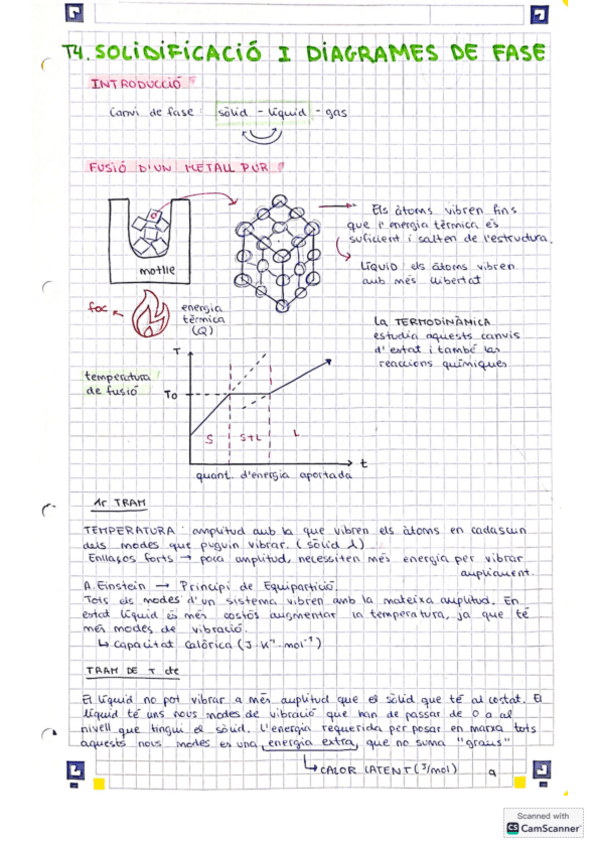 T4. SOLIDIFICACIÓ I DIAGRAMES DE FASE
INTRODUCCIÓ
Canvi de fase: sòlid - líquid - gas
FUSIÓ D'UN METALL PUR
Els àtoms vibren fins
que l'energia tèrmica és
suficient i salten de l'estructura.
LÍQUID: els àtoms vibren
amb més llibertat
motlle
foc
energia
tèrmica
(Q)
La TERMODINÀMICA
estudia aquests canvis
d'estat i també las
reaccions químiques
T
temperatura
de fusió
To
S
S+L
L
t
quant. d'energia aportada
1r TRAM
TEMPERATURA: amplitud amb la que vibren els àtoms en cadascun
dels modes que puguin vibrar. (sòlid λ)
Enllaços forts → poca amplitud, necessiten més energia per vibrar
ampliament.
A. Einstein → Principi de Equipartició.
Tots els modes d'un sistema vibren amb la mateixa amplitud. En
estat líquid és més costós augmentar la temperatura, ja que té
més modes de vibració.
↳ capacitat calòrica (J·K⁻¹·mol⁻¹)
TRAM DE T cte
El líquid no pot vibrar a més amplitud que el sòlid que té al costat. El
líquid té uns nous modes de vibració que han de passar de 0 a al
nivell que tingui el sòlid. L'energia requerida per posar en marxa tots
aquests nous modes es una energia extra, que no suma "graus"
↳ CALOR LATENT (J/mol)
Scanned with
CS CamScanner